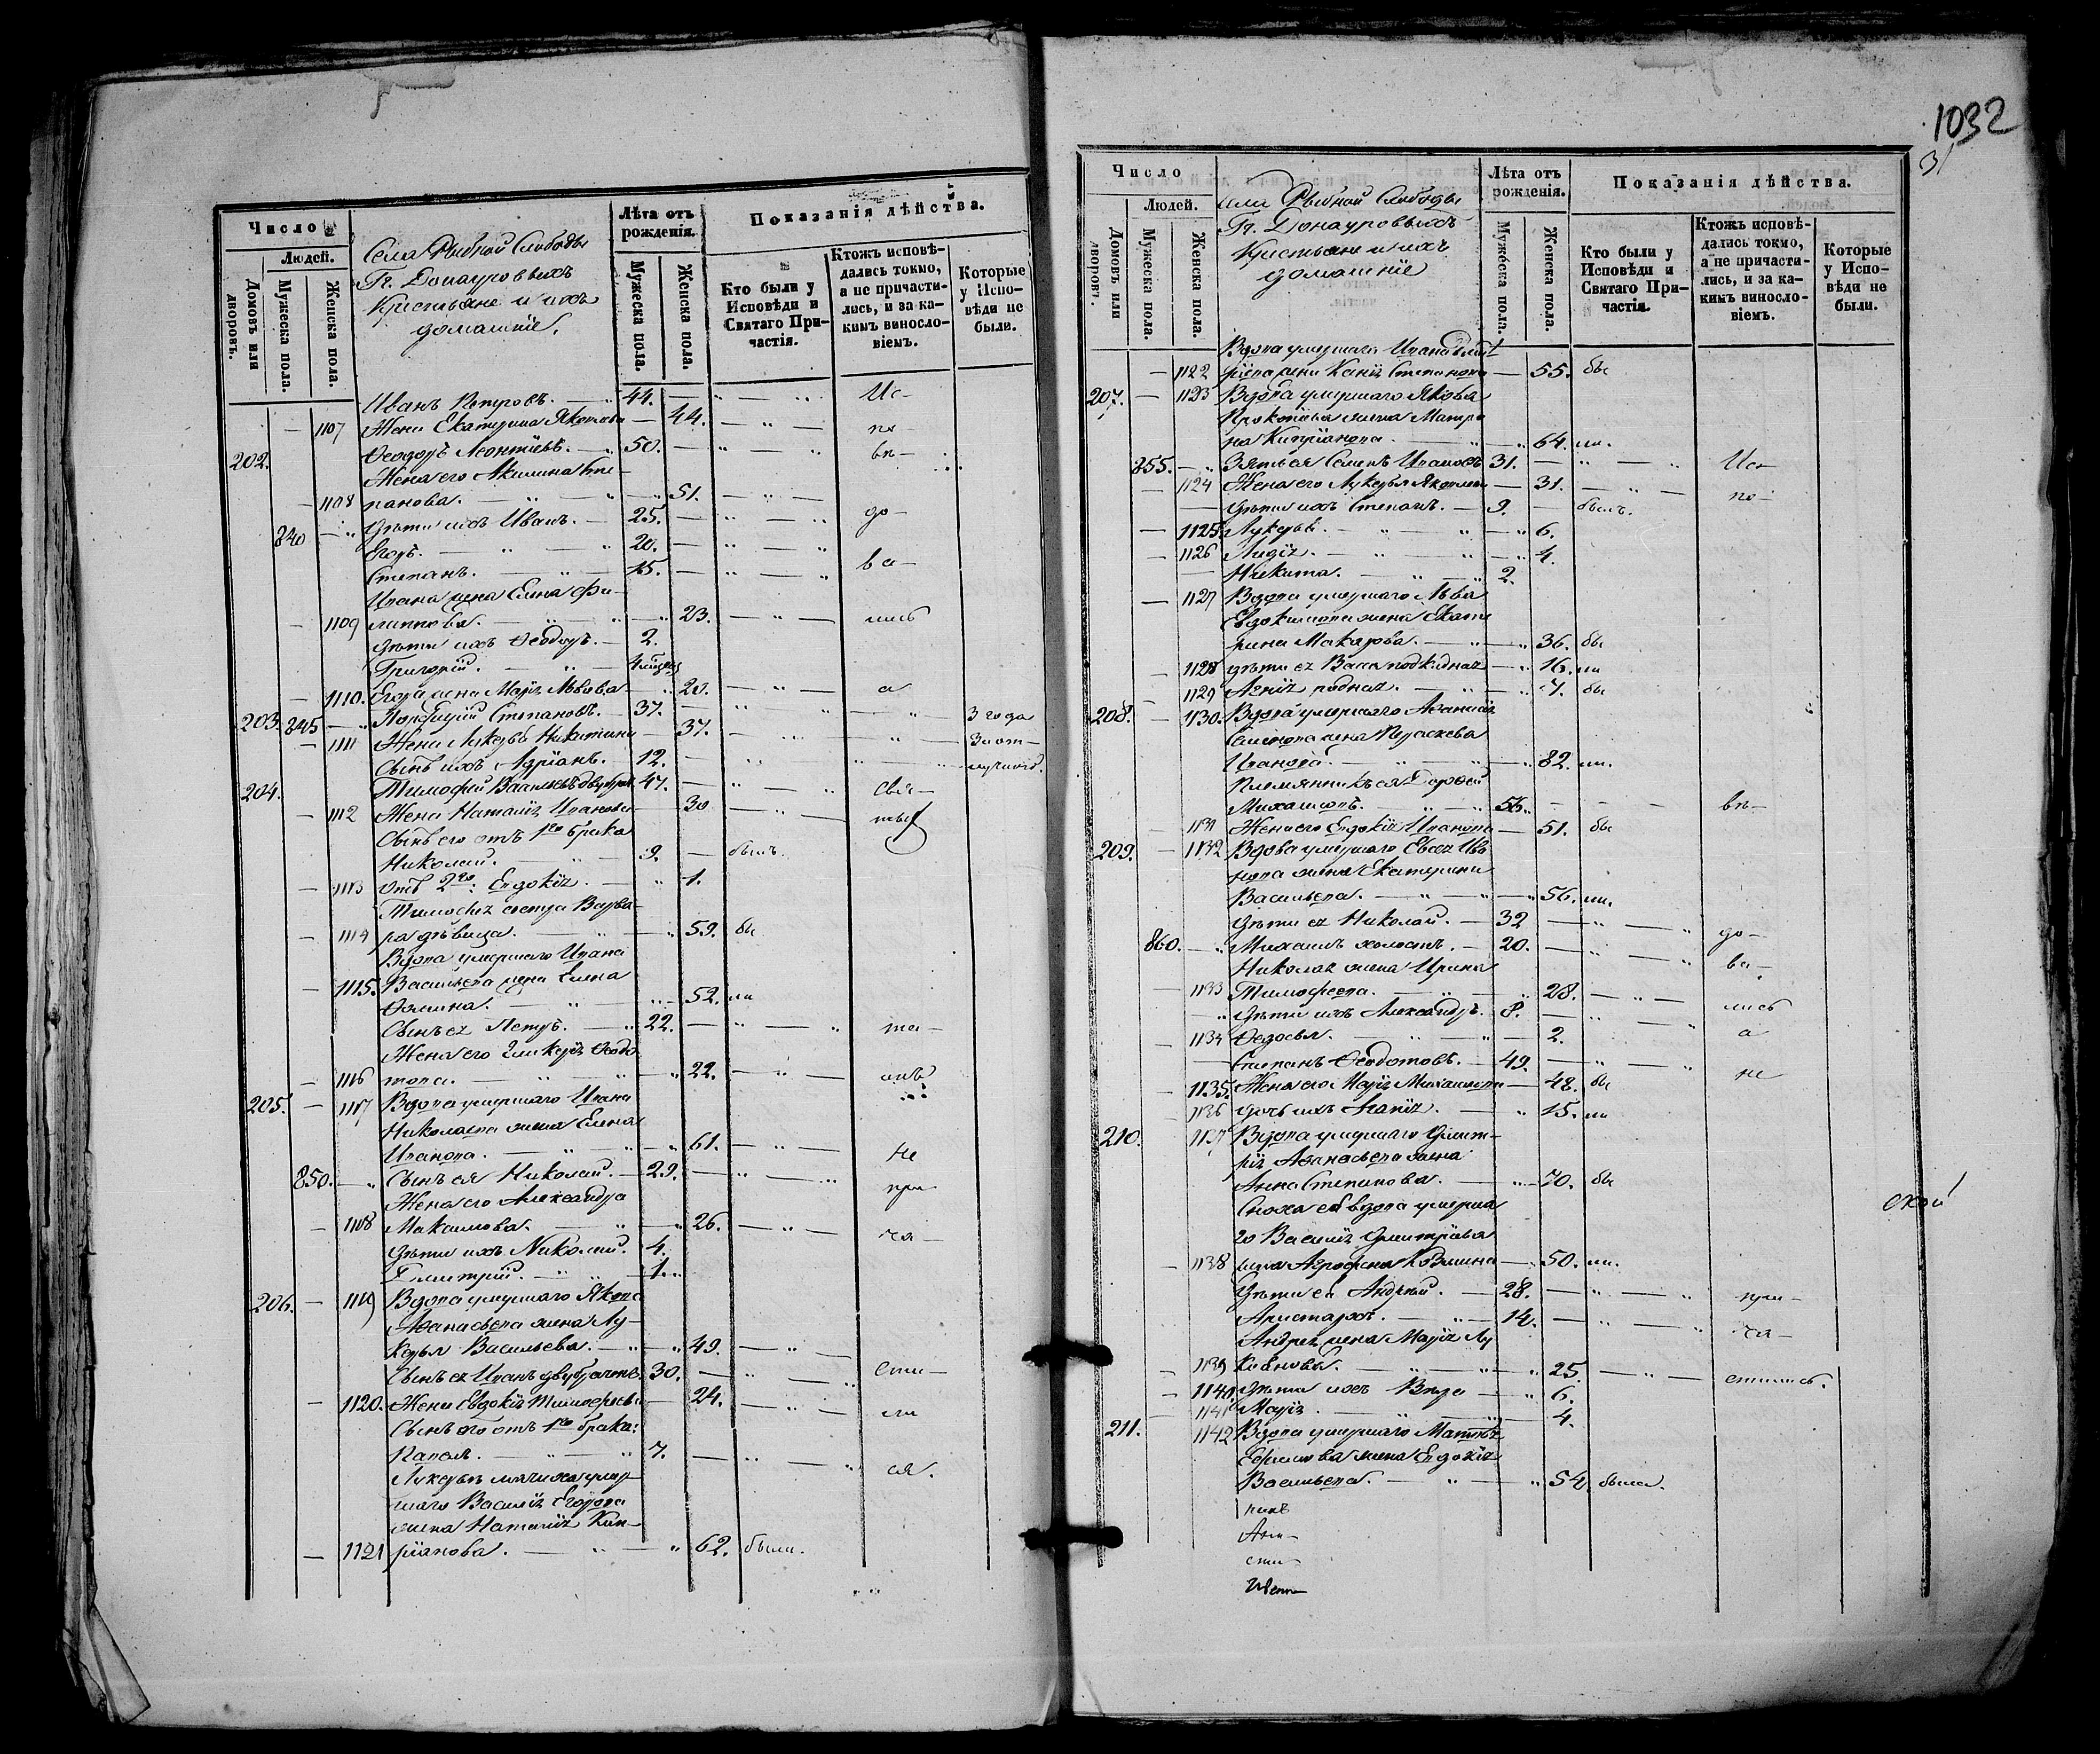 1032
31
Число
Людей.
Домовъ или дворовъ.
Мужеска пола.
Женска пола.
Села Рыбной Слободы
Гг. Донауровыхъ
Крестьяне и ихъ
домашніе.
Лѣта отъ рожденія.
Мужеска пола.
Женска пола.
Показанія дѣйства.
Кто были у Исповѣди и Святаго Причастія.
Ктожъ исповѣдались токмо, а не причастились, и за какимъ винословіемъ.
Которые у Исповѣди не были.
Иванъ Петровъ. — 44. Ис-
— 1107 Жена Екатерина Яковлева — 44. по
202. Ѳеодоръ Леонтіевъ. — 50. вѣ-
Жена его Акилина Сте-
— 1108 панова. — 51.
840 дѣти ихъ Иванъ. — 25. до-
Егоръ. — 20.
Степанъ. — 15. ва-
Ивана жена Елена Фи-
— 1109 липпова. — 23. лись
дѣти ихъ Ѳеодоръ. — 2.
Григорій. —
— 1110. Егора жена Марія Львова — 20. а
203. 845 Порфирій Степановъ. — 37. 3 года
— 1111 Жена Лукерья Никитина — 37. За от-
Сынъ ихъ Адріанъ. 12. лучкой.
204. Тимофей Васильевъ двубрач 47. свя-
— 1112 Жена Наталія Иванова 30
Сынъ его отъ 1го брака
Николай. — 9. — былъ.
— 1113 отъ 2го: Евдокія. — 1.
Тимофея сестра Варва-
— 1114 ра дѣвица. — 59. бы
Вдова умершаго Ивана
— 1115. Васильева жена Елена
Ѳомина. — 52. ли
Сынъ ея Петръ. — 22. та-
Жена его Гликерія Ѳедо-
— 1116 това. — 22. инъ
205. — 1117 Вдова умершаго Ивана
Николаева жена Елена
Иванова. — 61. Не
850. Сынъ ея Николай. — 29. при
Жена его Александра
— 1118 Максимова. — 26. ча-
дѣти ихъ Николай. 4.
Димитрій. — 1.
206. — 1119 Вдова умершаго Якова
Аѳанасьева жена Лу-
керья Васильева. — 49.
Сынъ ея Иванъ двубрачнъ. 30. сти-
— 1120. Жена Евдокія Тимофеева 24. ли
Сынъ его отъ 1го брака:
Павелъ. — 7. ся.
Лукерьи мачиха умер-
шаго Василія Егорова
жена Наталія Кип-
— 1121 ріанова. — 62. была.
Число
Людей.
Домовъ или дворовъ.
Мужеска пола.
Женска пола.
Села Рыбной Слободы
Гг. Донауровыхъ
Крестьяне и ихъ
домашніе
Лѣта отъ рожденія.
Мужеска пола.
Женска пола.
Показанія дѣйства.
Кто были у Исповѣди и Святаго Причастія.
Ктожъ исповѣдались токмо, а не причастились, и за какимъ винословіемъ.
Которые у Исповѣди не были.
Вдова умершаго Ивана
— 1122 Степанова — 55. бы
207. — 1123 Вдова умершаго Якова
Прокопьева жена Матре
на Кипріанова. — 64. ли.
855. — Зять ея Семенъ Ивановъ 31. — Ис-
— 1124 Жена его Лукерья Яковлева — 31. по-
дѣти ихъ Степанъ. — 9. — былъ.
— 1125 Лукерья. — 6.
— 1126 Лидія. — 4.
Никита. — 2.
— 1127 Вдова умершаго Льва
Евдокимова жена Екате
рина Макарова. — 36. бы
— 1128 дѣти ея Васса подкидная — 16. ли
1129 Агнія родная. — 7. бы
208. — 1130. Вдова умершаго Аѳанасія
Семенова жена Параскева
Иванова. — 82. ли.
Племянникъ ея Дорофей
Михайловъ. — 56. — вѣ-
— 1131 Жена его Евдокія Иванова — 51. бы
209. — 1132 Вдова умершаго Евсея Ива
нова жена Екатерина
Васильева. — 56. ли.
дѣти ея Николай. — 32 до-
860. Михаилъ холостъ. — 20. ва-
Николая жена Ирина
— 1133 Тимофеева. — 28. лись
дѣти ихъ Александръ. 8. а
— 1134 Ѳедосья. — 2.
Степанъ Ѳеодотовъ. — 49. не
— 1135. Жена его Марія Михайлова — 48. бы
— 1136 дочь ихъ Агапія. — 15. ли
210. 1137 Вдова умершаго Дмит-
рія Аѳанасьева жена
Анна Степанова. — 70. бы
Сноха ея вдова умерша
го Василія Дмитріева
— 1138 жена Агрофена Козмина — 50. ли.
дѣти ея Андрей. — 28. при-
Аристархъ. — 14. ча-
Андрея жена Марія Лу
— 1139 киянова. — 25. стились.
— 1140 дѣти ихъ Вѣра — 6.
— 1141 Марія. — 4.
211. 1142 Вдова умершаго Матвѣя
Ефимова жена Евдокія
Васильева. — 54. была.
ской